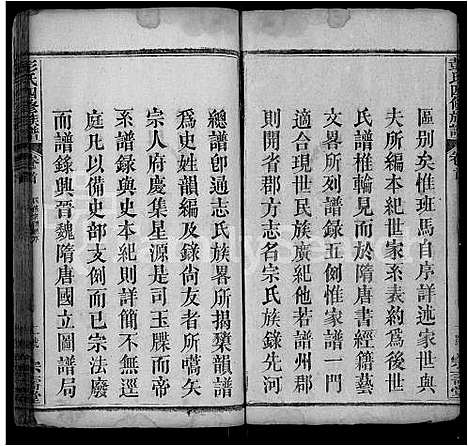 區别矣惟班馬自序詳述家世與
夫所編本紀世家系表約爲後世
氏譜椎輪見而於隋唐書經籍藝
文志乃列譜錄五倒惟家譜一門
適合現世民族廣紀他若譜州郡
則開省郡方志宗氏族錄先河
總譜卽通志氏族畧所揭橥韻譜
爲史姓韻編及錄尚友者所嚆矢
宗人府慶集星源是司玉牒而帝
皇世系與史本紀則詳簡不無逕
庭凡以備史部支倒而已宗法廢
而譜錄興晉魏隋唐國立圖譜局
彭氏四修族譜
卷首
彭氏四修族譜
卷首